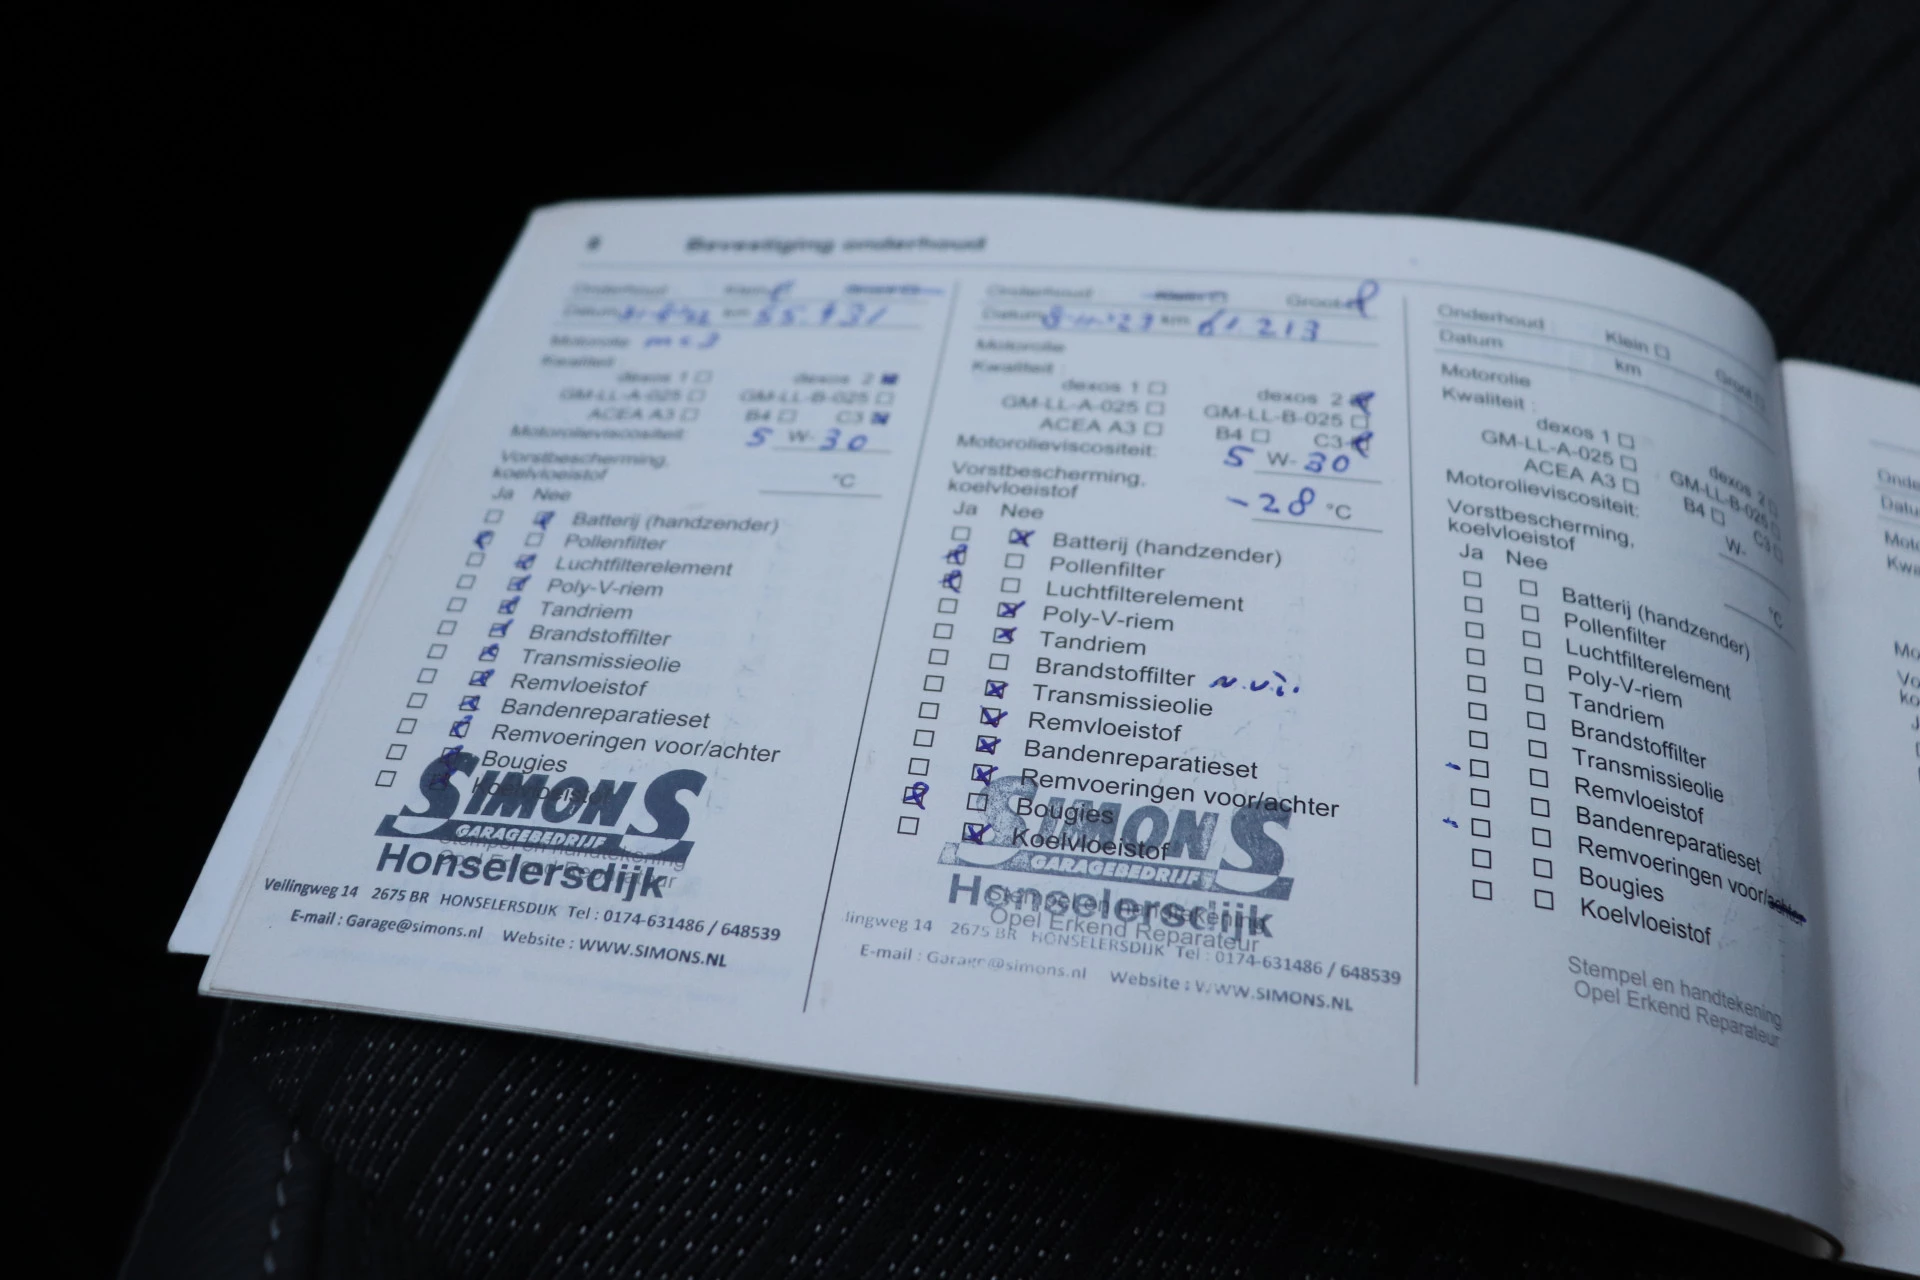 8 Bevestiging onderhoud
Onderhoud Klein
Datum km 55.931
Motorolie
Kwaliteit :
dexos 1 dexos 2
GM-LL-A-025 GM-LL-B-025
ACEA A3 B4 C3
Motorolieviscositeit: 5 W- 30
Vorstbescherming,
koelvloeistof °C
Ja Nee
Batterij (handzender)
Pollenfilter
Luchtfilterelement
Poly-V-riem
Tandriem
Brandstoffilter
Transmissieolie
Remvloeistof
Bandenreparatieset
Remvoeringen voor/achter
Bougies
Koelvloeistof
SIMONS
GARAGEBEDRIJF
Stempel en handtekening
Honselersdijk
Opel Erkend Reparateur
Veilingweg 14 2675 BR HONSELERSDIJK Tel : 0174-631486 / 648539
E-mail : Garage@simons.nl Website : WWW.SIMONS.NL
Onderhoud Klein Groot
Datum km 61.213
Motorolie
Kwaliteit :
dexos 1 dexos 2
GM-LL-A-025 GM-LL-B-025
ACEA A3 B4 C3
Motorolieviscositeit: 5 W- 30
Vorstbescherming,
koelvloeistof -28 °C
Ja Nee
Batterij (handzender)
Pollenfilter
Luchtfilterelement
Poly-V-riem
Tandriem
Brandstoffilter
Transmissieolie
Remvloeistof
Bandenreparatieset
Remvoeringen voor/achter
Bougies
Koelvloeistof
SIMONS
GARAGEBEDRIJF
Honselersdijk
Stempel en handtekening
Opel Erkend Reparateur
lingweg 14 2675 BR HONSELERSDIJK Tel : 0174-631486 / 648539
E-mail : Garage@simons.nl Website : WWW.SIMONS.NL
Onderhoud Klein Groot
Datum km
Motorolie
Kwaliteit :
dexos 1 dexos 2
GM-LL-A-025 GM-LL-B-025
ACEA A3 B4 C3
Motorolieviscositeit: W-
Vorstbescherming,
koelvloeistof °C
Ja Nee
Batterij (handzender)
Pollenfilter
Luchtfilterelement
Poly-V-riem
Tandriem
Brandstoffilter
Transmissieolie
Remvloeistof
Bandenreparatieset
Remvoeringen voor/achter
Bougies
Koelvloeistof
Stempel en handtekening
Opel Erkend Reparateur